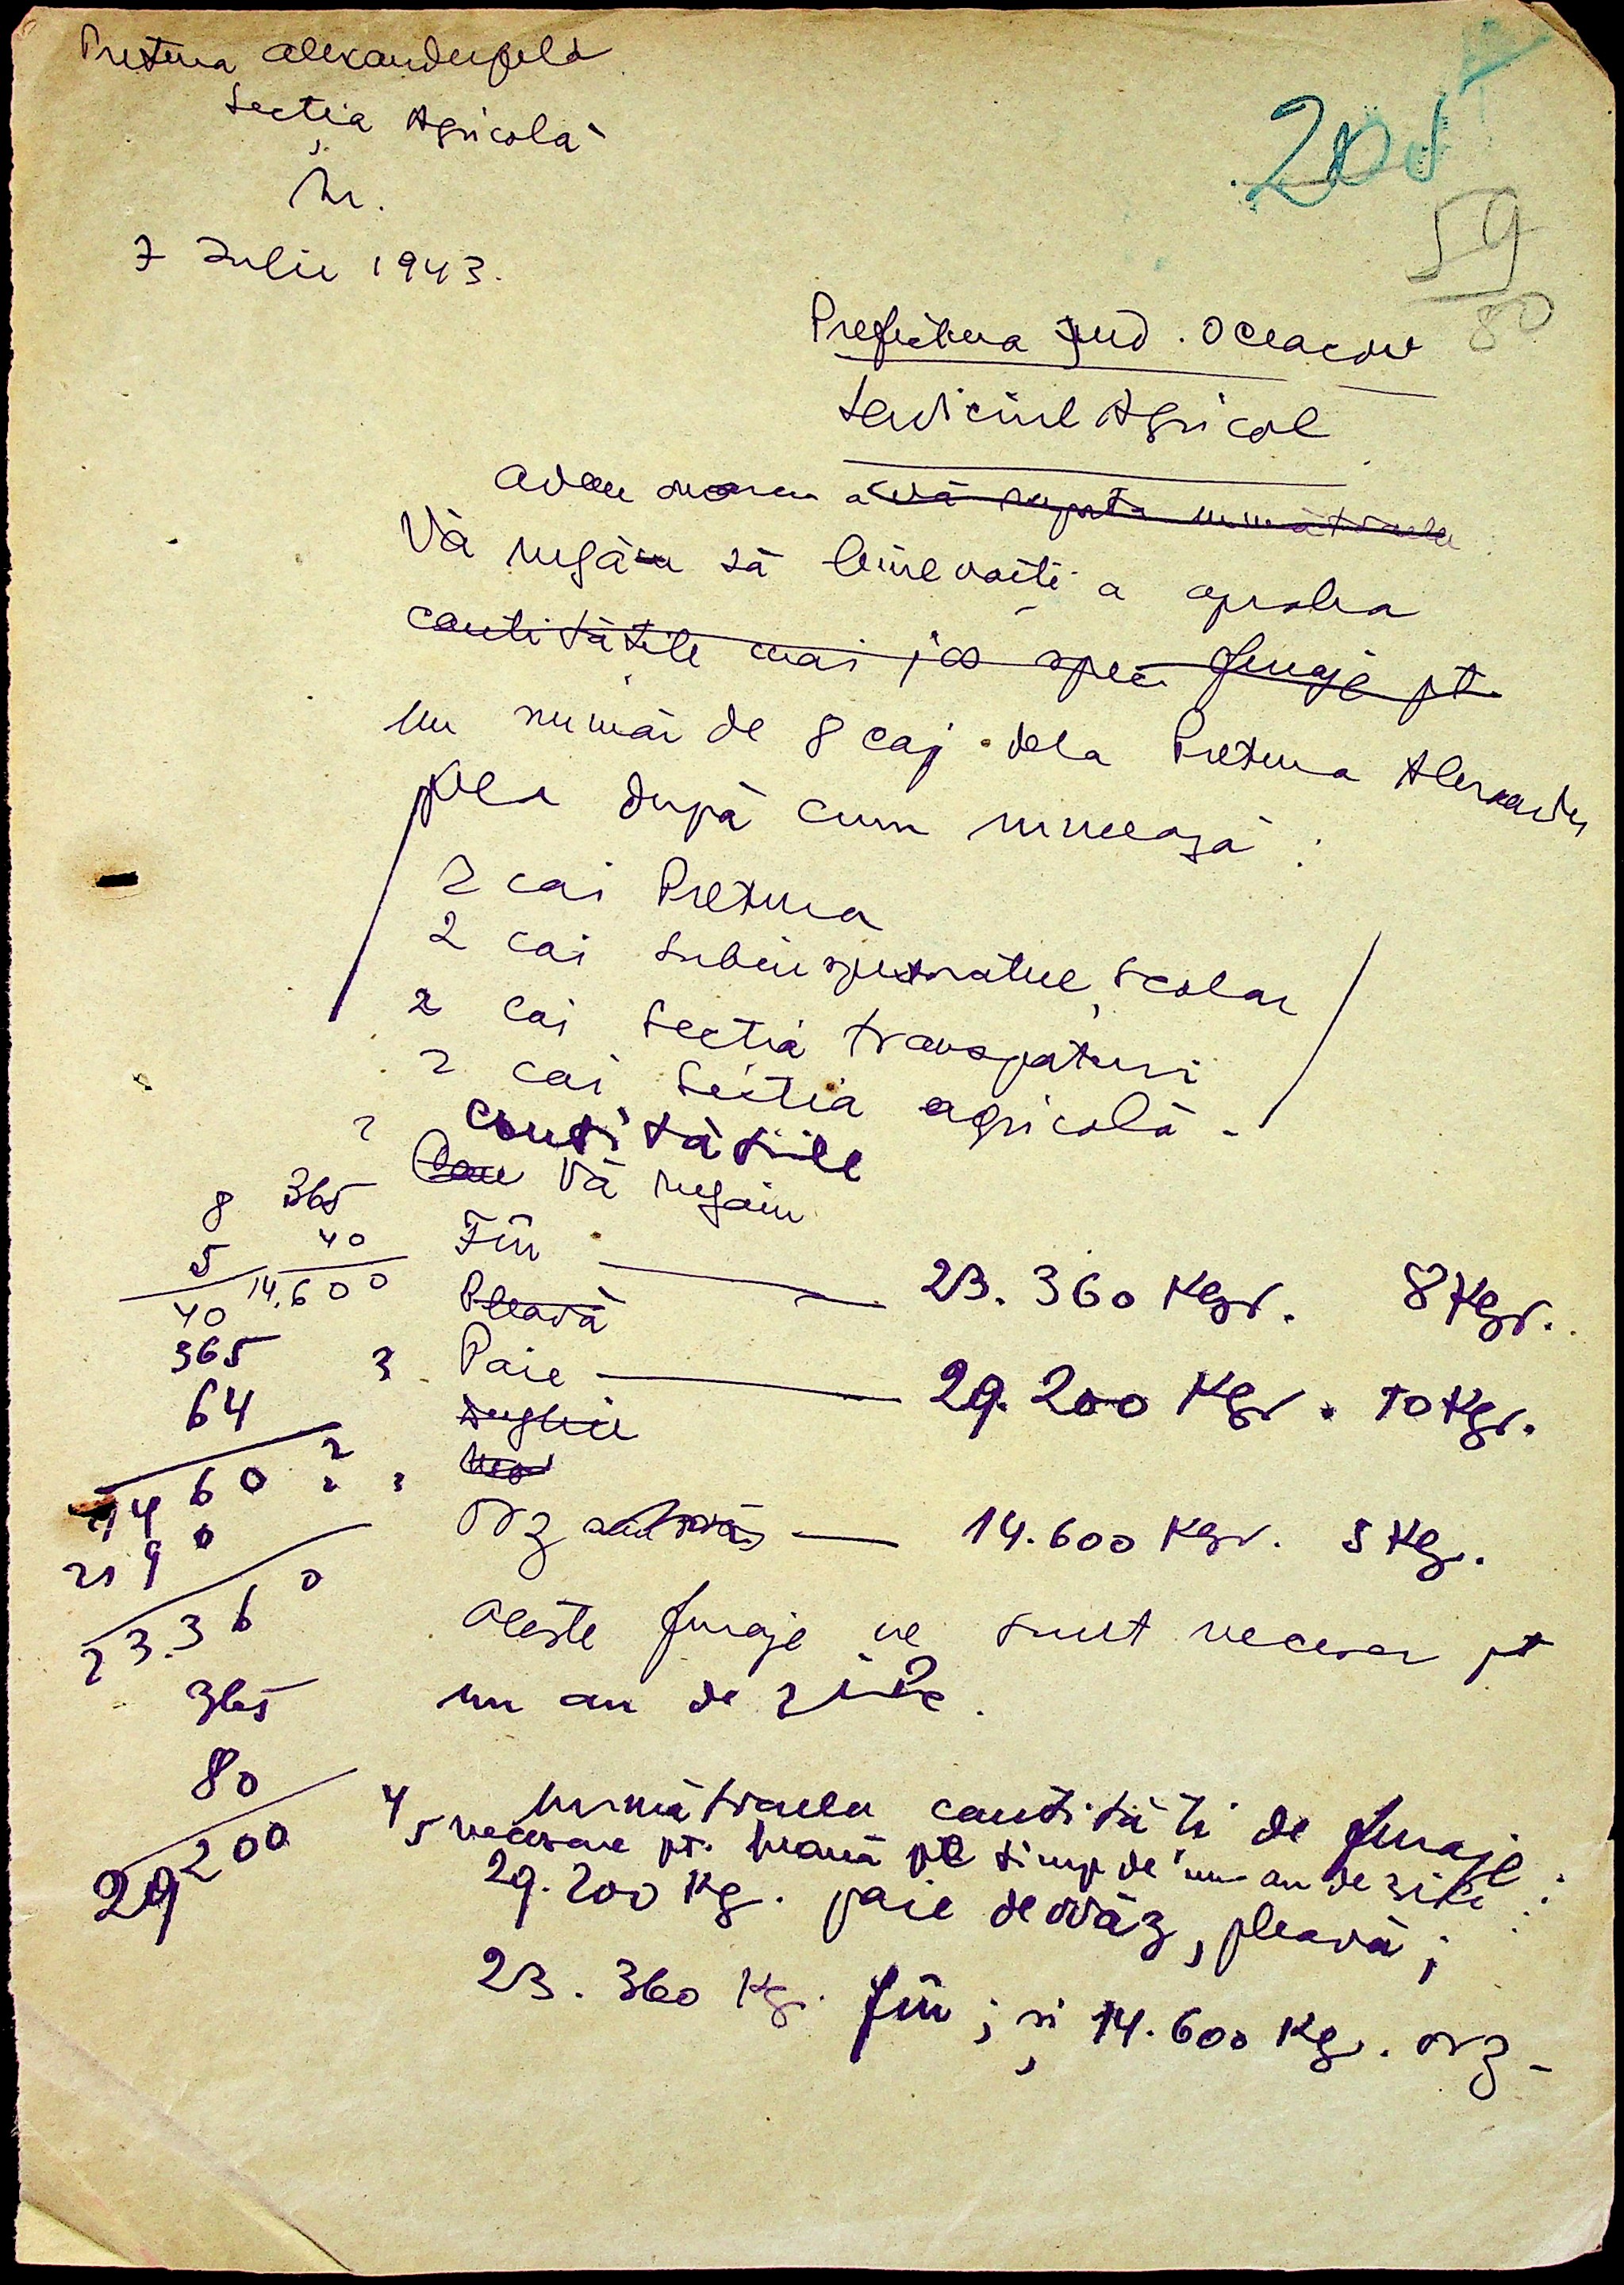 Pretura Alexanderfeld
Secția Agricolă
Nr.
7 Iulie 1943.
205
59
80
Prefectura Jud. Oceacov
Serviciul Agricol
Avem onoarea a vă raporta următoarele
Vă rugăm să binevoiți a aproba
cantitățile mai jos spec. furaje pt.
un număr de 8 cai dela Pretura Alexander
feld după cum urmează:
2 cai Pretura
2 cai Subinspectoratul Școlar
2 cai Secția transporturi
2 cai Secția agricolă -
cantitățile
Vă rugăm
Fîn — 23.360 Kgr. 8 Kgr.
Pleavă
Paie — 29.200 Kgr. 10 Kgr.
Orz — 14.600 Kgr. 5 Kg.
Aceste furaje ne sunt necesar pt
un an de zile.
următoarele cantități de furaje
necesare pt. hrană pe timp de un an de zile:
29.200 Kg. paie de ovăz, pleavă;
23.360 Kg. fîn; și 14.600 Kg. orz -
8
5
40
365
40
14.600
365
64
1460
2190
23.360
365
80
29200